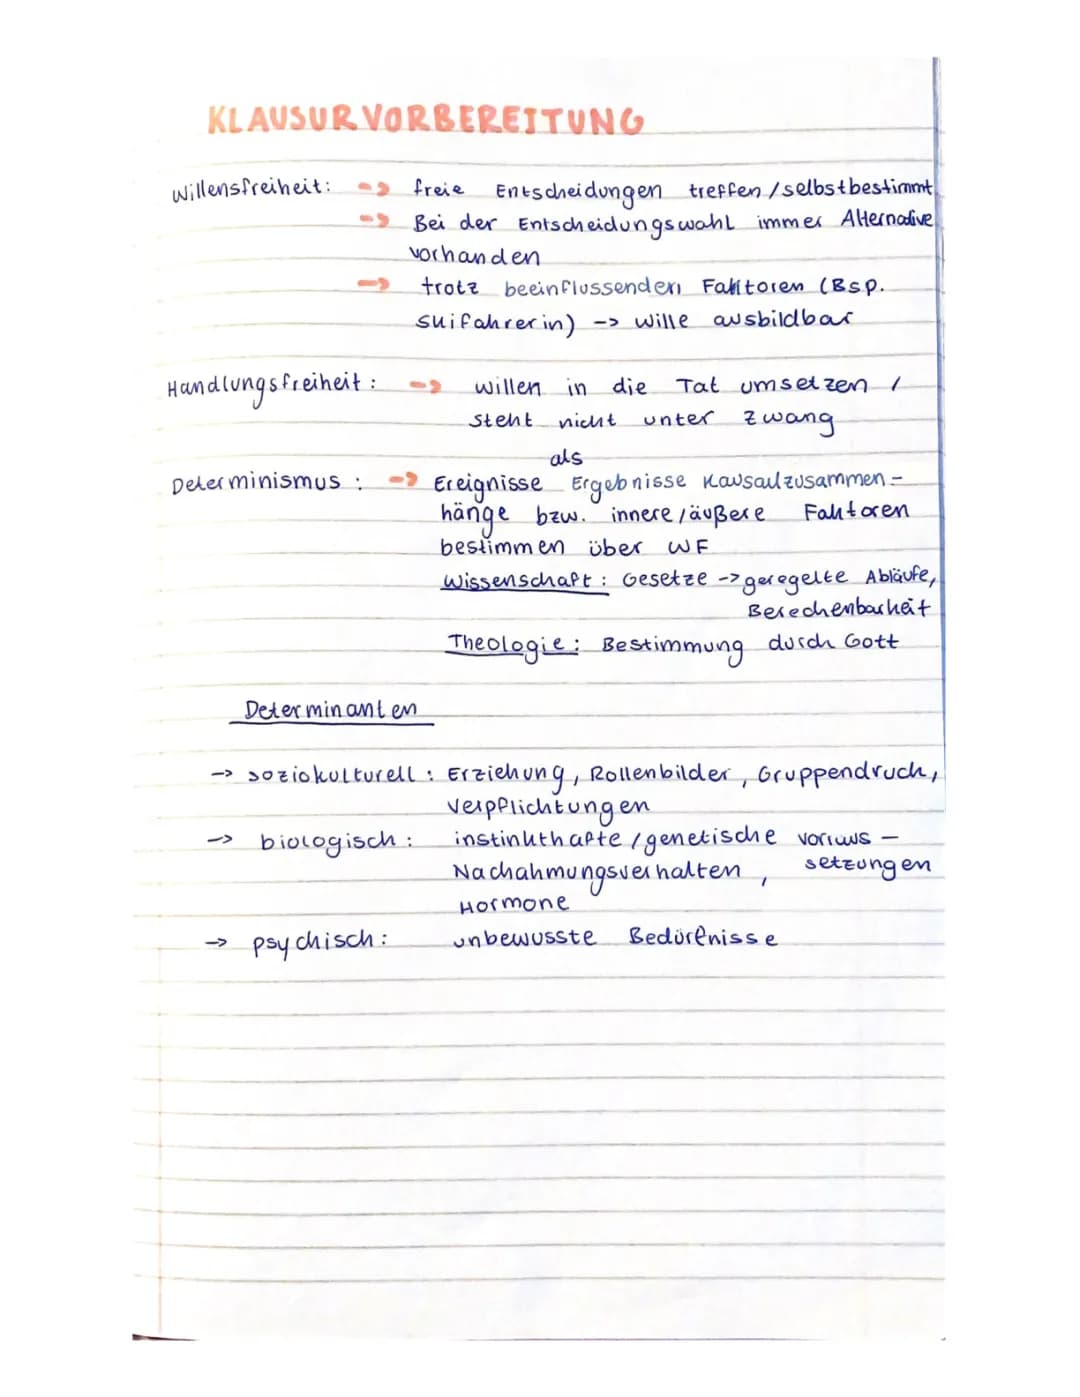 KLAUSURVORBEREITUNG
Willensfreiheit: => freie Entscheidungen treffen / selbstbestimmt
=> Bei der Entscheidungswahl immer Alternative
vorhanden
=> trotz beeinflussenden Faktoren (Bsp.
Skifahrerin) -> Wille ausbildbar
Handlungsfreiheit: => willen in die Tat umsetzen /
steht nicht unter Zwang
als
Determinismus: => Ereignisse Ergebnisse Kausalzusammen-
hänge bzw. innere/äußere Faktoren
bestimmen über WF
Wissenschaft: Gesetze -> geregelte Abläufe,
Berechenbarkeit
Theologie: Bestimmung durch Gott
Determinanten
-> soziokulturell: Erziehung, Rollenbilder, Gruppendruck,
Verpflichtungen
-> biologisch: instinkthafte / genetische Voraus-
setzungen
Nachahmungsverhalten,
Hormone
-> psychisch: unbewusste Bedürfnisse